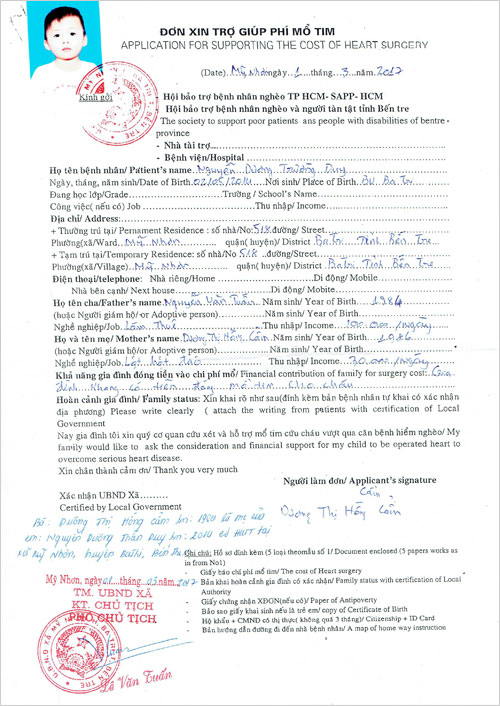 ĐƠN XIN TRỢ GIÚP PHÍ MỔ TIM
APPLICATION FOR SUPPORTING THE COST OF HEART SURGERY
(Date) Mỹ Nhơn ngày 1 tháng 3 năm 2017
Kính gởi
Hội bảo trợ bệnh nhân nghèo TP HCM- SAPP- HCM
Hội bảo trợ bệnh nhân nghèo và người tàn tật tỉnh Bến tre
The society to support poor patients ans people with disabilities of bentre - province
- Nhà tài trợ
- Bệnh viện/Hospital
Họ tên bệnh nhân/ Patient's name Nguyễn Dương Trường Duy
Ngày, tháng, năm sinh/Date of Birth 02/05/2014 Nơi sinh/ Place of Birth BV Ba Tri
Đang học lớp/Grade Trường / School's Name
Công việc( nếu có) Job Thu nhập/ Income
Địa chỉ/ Address:
+ Thường trú tại/ Permament Residence : số nhà/No: 518 đường/ Street
Phường(xã/Ward Mỹ Nhơn quận( huyện)/ District Ba Tri Tỉnh Bến Tre
+ Tạm trú tại/Temporary Residence: số nhà/No 518 đường/Street
Phường(xã/Village) Mỹ Nhơn quận( huyện)/ District Ba Tri Tỉnh Bến Tre
Điện thoại/telephone: Nhà riêng/Home Di động/ Mobile
Nhà bên cạnh/ Next house Di động/ Mobile
Họ tên cha/Father's name Nguyễn Văn Tuấn Năm sinh/ Year of Birth 1984
(hoặc Người giám hộ/ or Adoptive person) Năm sinh/ Year of Birth
Nghề nghiệp/Job Làm Thuê Thu nhập/ Income 100.000 /ngày
Họ và tên mẹ/ Mother's name Dương Thị Hồng Cẩm Năm sinh/ Year of Birth 1986
(hoặc Người giám hộ/ or Adoptive person) Năm sinh/ Year of Birth
Nghề nghiệp/Job Thu nhập/ Income 30.000 /ngày
Khả năng gia đình đóng tiền vào chi phí mổ/ Financial contribution of family for surgery cost: Gia
đình không có tiền đóng mổ tim cho cháu
Hoàn cảnh gia đình/ Family status: Xin khai rõ như sau(đính kèm bản bệnh nhân tự khai có xác nhận
địa phương) Please write clearly ( attach the writing from patients with certification of Local
Government
Nay gia đình tôi xin quý cơ quan cứu xét và hỗ trợ mổ tim cứu cháu vượt qua căn bệnh hiểm nghèo/ My
family would like to ask the consideration and financial support for my child to be operated heart to
overcome serious heart disease.
Xin chân thành cảm ơn/ Thank you very much
Người làm đơn/ Applicant's signature
Cẩm
Dương Thị Hồng Cẩm
Xác nhận UBND Xã
Certified by Local Government
Bà: Dương Thị Hồng Cẩm là mẹ
em: Nguyễn Dương 2014 có HKTT tại
xã Mỹ Nhơn, huyện Ba Tri, Bến Tre
Ghi chú: Hồ sơ đính kèm (5 loại theo mẫu số 1/ Document enclosed (5 papers works as
in from No1)
- Giấy báo chi phí mổ tim/ The cost of Heart surgery
- Bản khai hoàn cảnh gia đình có xác nhận/ Family status with certification of Local
Authority
- Giấy chứng nhận XĐGN(nếu có)/ Paper of Antipoverty
- Bảo sao giấy khai sinh nếu là trẻ em/ copy of Certificate of Birth
- Hộ khẩu + CMND có thị thực( không quá 3 tháng)/ Citizenship + ID Card
- Bản hướng dẫn đường đi đến nhà bệnh nhân/ A map of home way instruction
Mỹ Nhơn, ngày 01 tháng 03 năm 2017
TM. UBND XÃ
KT. CHỦ TỊCH
PHÓ CHỦ TỊCH
Lê Văn Tuấn